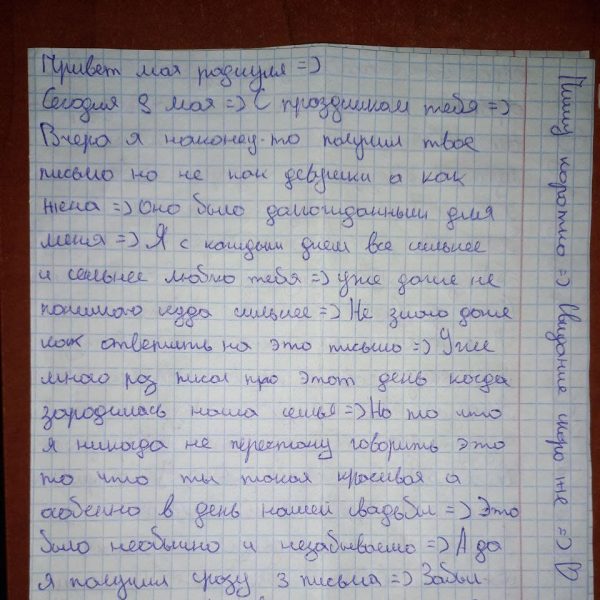 Привет моя роднуля =)
Сегодня 9 мая =) С праздником тебя =)
Вчера я наконец-то получил твое
письмо но не как девушки а как
жена =) Оно было долгожданным для
меня =) Я с каждым днем все сильнее
и сильнее люблю тебя =) уже даже не
понимаю куда сильнее =) Не знаю даже
как ответить на это письмо =) Уже
много раз писал про этот день когда
зародилась наша семья =) Но то что
я никогда не перестану говорить это
то что ты такая красивая а
особенно в день нашей свадьбы =) Это
было необычно и незабываемо =) А да
я получил сразу 3 письма =) Забыл
Пишу коротко =) Свидание скоро же =)